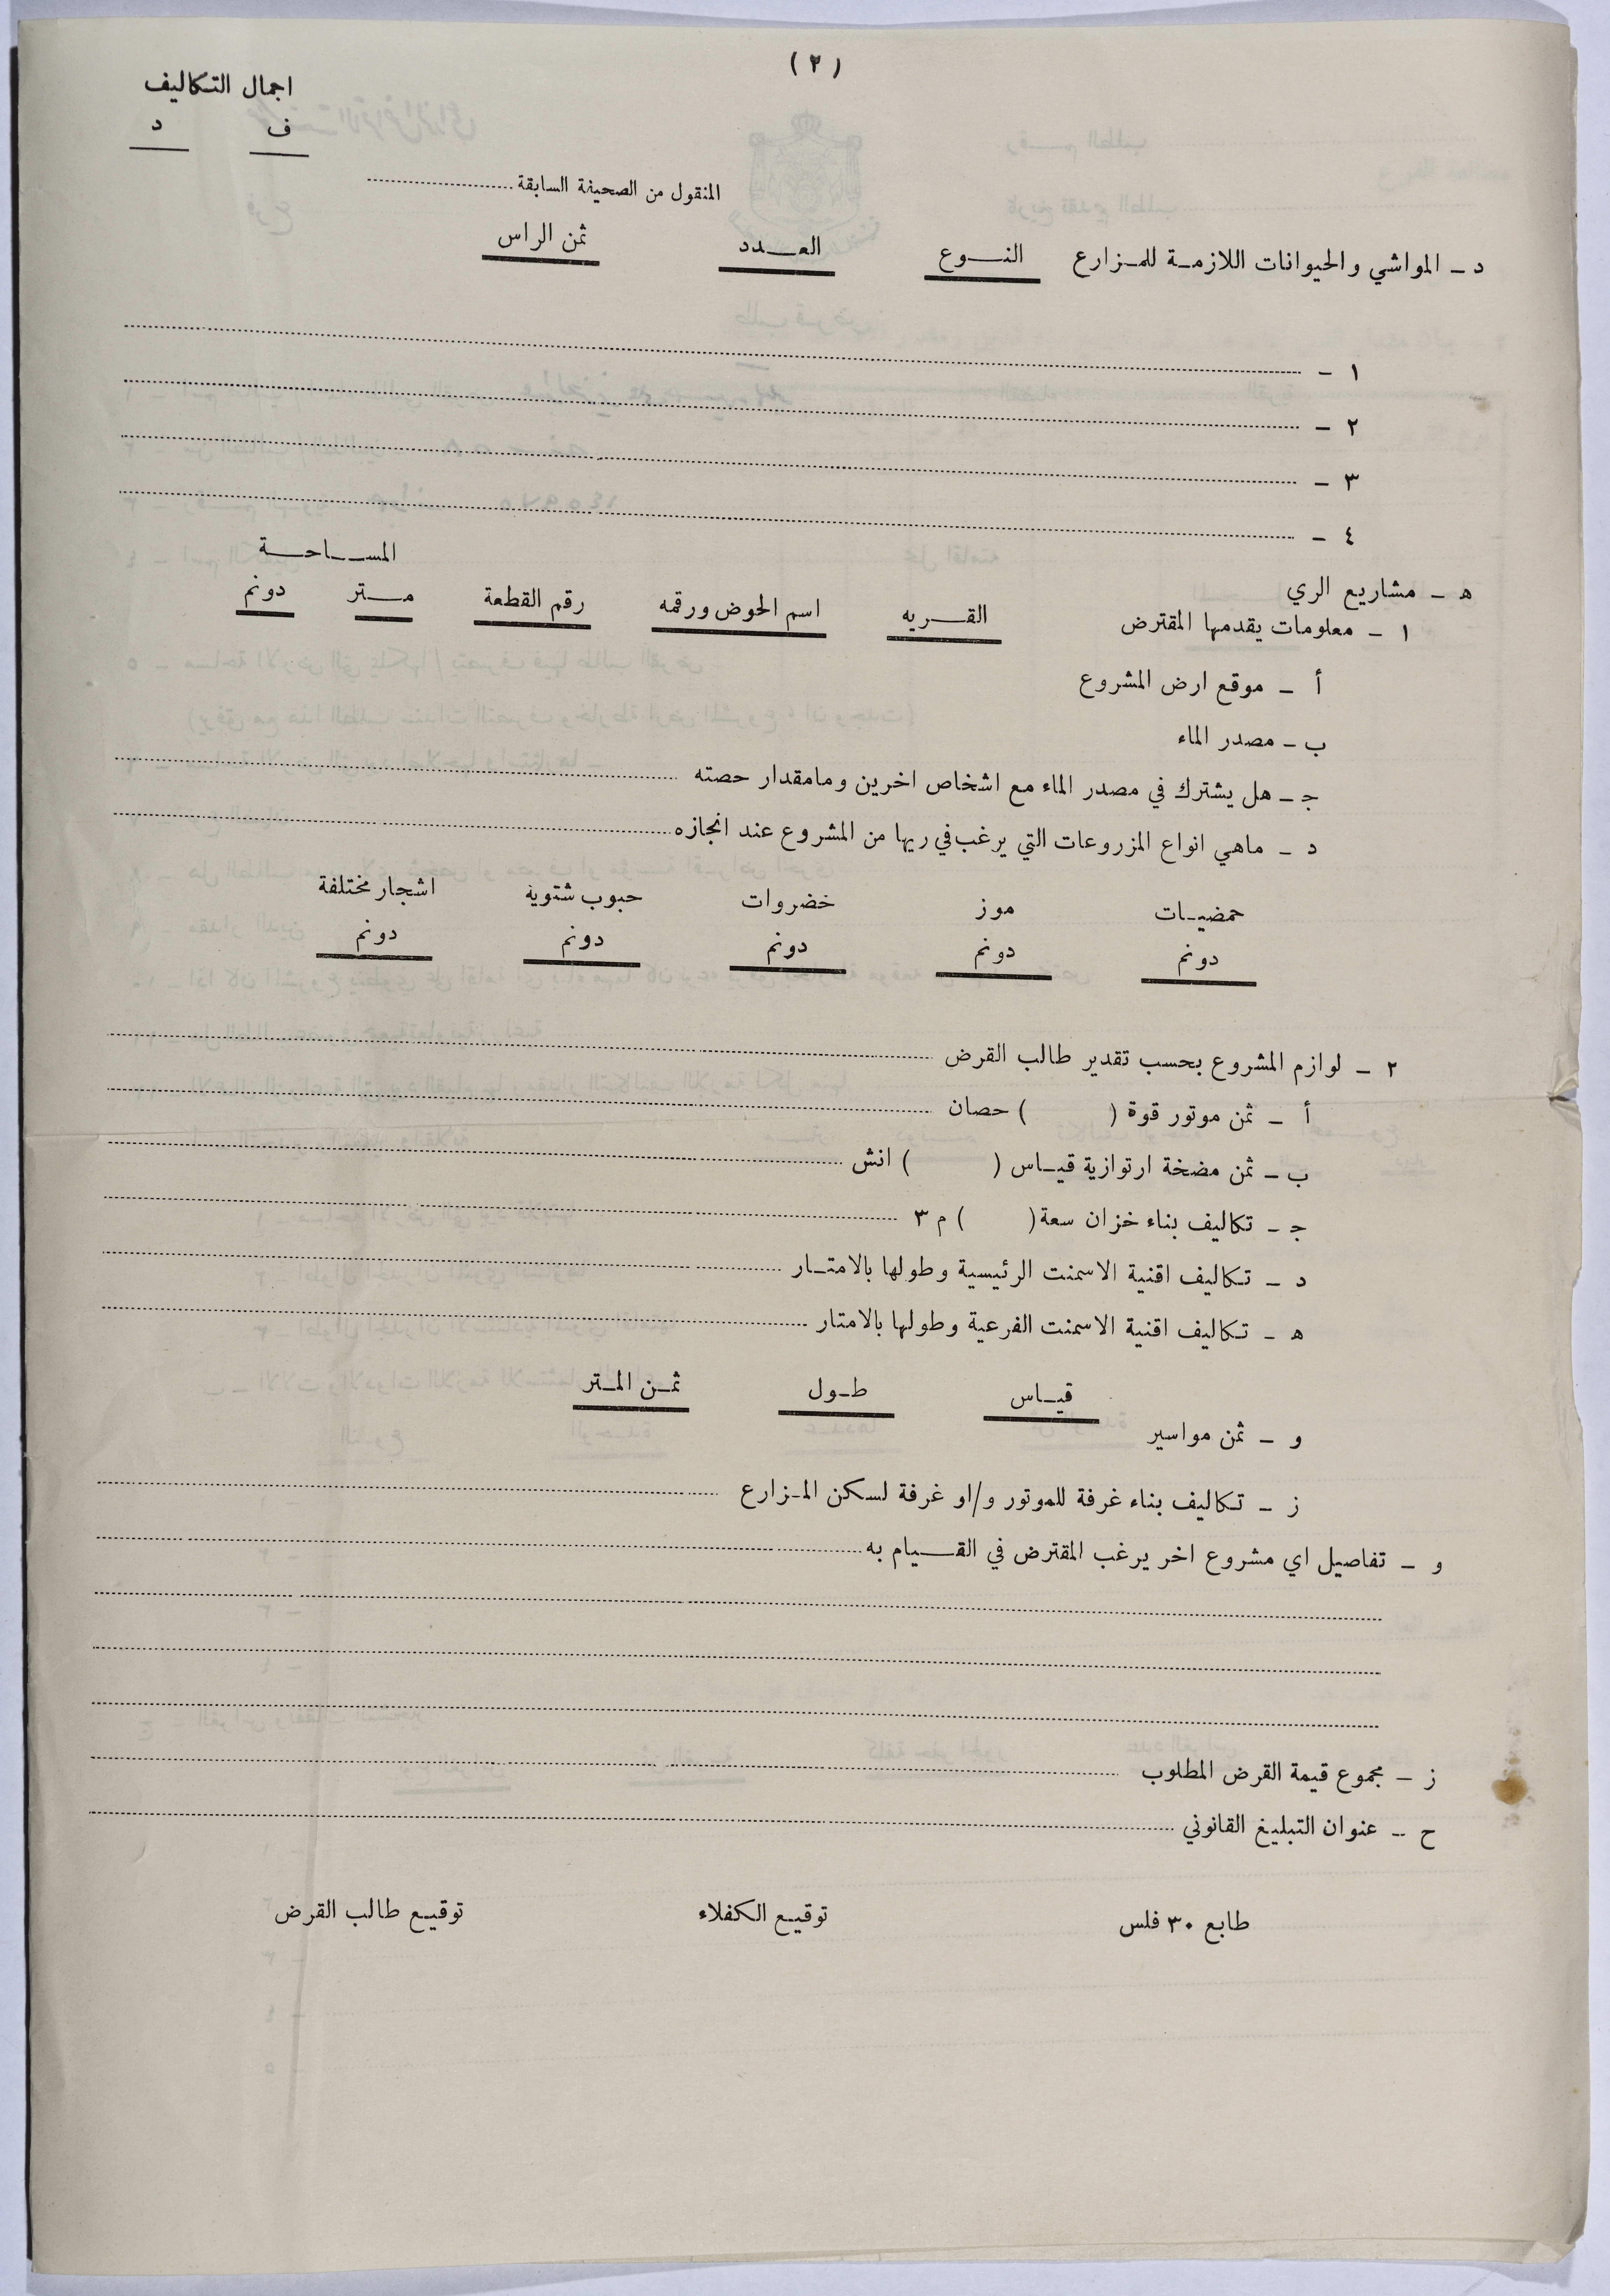 (٢)
اجمال التكاليف
ف د
المنقول من الصحيفة السابقة
د - المواشي والحيوانات اللازمة للمزارع النوع العدد ثمن الراس
١ -
٢ -
٣ -
٤ -
المساحة
ه - مشاريع الري
١ - معلومات يقدمها المقترض القريه اسم الحوض ورقمه رقم القطعة متر دونم
أ - موقع ارض المشروع
ب - مصدر الماء
ج - هل يشترك في مصدر الماء مع اشخاص اخرين ومامقدار حصته
د - ماهي انواع المزروعات التي يرغب في ريها من المشروع عند انجازه
حمضيات موز خضروات حبوب شتوية اشجار مختلفة
دونم دونم دونم دونم دونم
٢ - لوازم المشروع بحسب تقدير طالب القرض
أ - ثمن موتور قوة ( ) حصان
ب - ثمن مضخة ارتوازية قياس ( ) انش
ج - تكاليف بناء خزان سعة ( ) م ٣
د - تكاليف اقنية الاسمنت الرئيسية وطولها بالامتار
ه - تكاليف اقنية الاسمنت الفرعية وطولها بالامتار
قياس طول ثمن المتر
و - ثمن مواسير
ز - تكاليف بناء غرفة للموتور و/او غرفة لسكن المزارع
و - تفاصيل اي مشروع اخر يرغب المقترض في القيام به
ز - مجموع قيمة القرض المطلوب
ح - عنوان التبليغ القانوني
طابع ٣٠ فلس توقيع الكفلاء توقيع طالب القرض